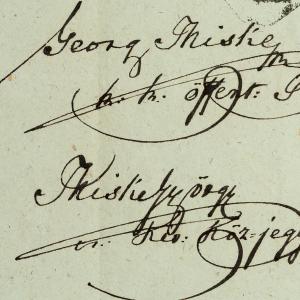 Georg Thiske
k. k. öffent: G
Thiske György
kir. Köz-jegy